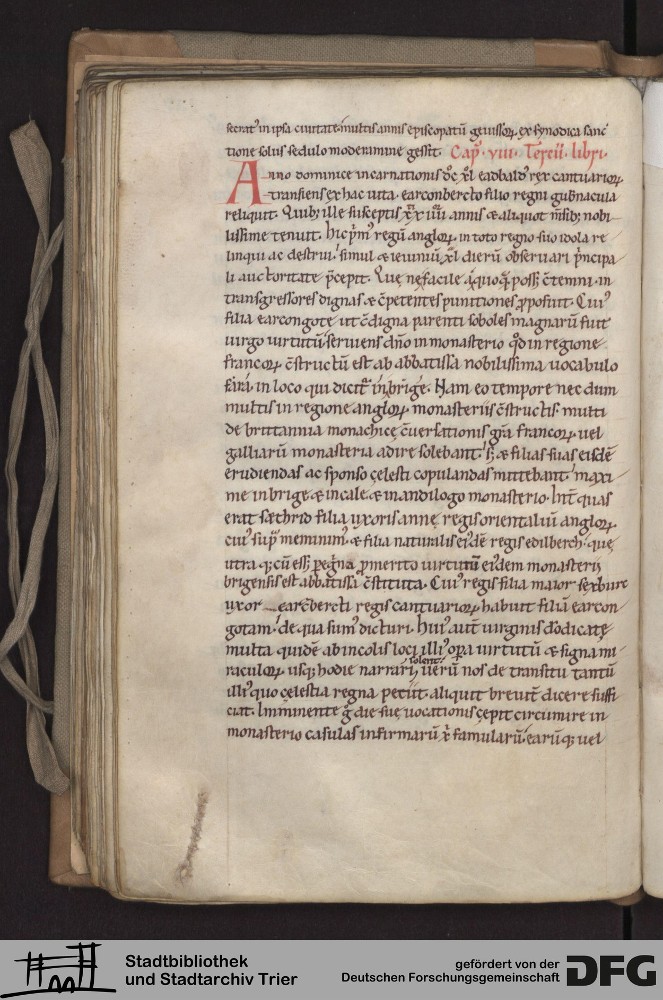 secrat' in ipsa ciuitate. multis annis episcopatū geuissorꝝ. ex synodica sanc
tione solus sedulo moderamine gessit. Cap̄. viii. Tercii libri.
Anno dominice incarnationis dc̄. xl. eadbald' rex cantuariorꝝ
transiens ex hac uita. earconbercto filio regni gub̄nacula
reliquit. Quib; ille susceptis xx iiii annis & aliquot m̄sib; nobi
lissime tenuit. hic p'm' regū anglorꝝ in toto regno suo idola re
linqui ac destrui. simul & ieiuniū xl dierū obseruari p'ncipa
li auctoritate p̄cepit. Que ne facile a quoq; poss& c̄temni. in
transgressores dignas & c̄petentes punitiones p̄posuit. Cui'
filia earcongote ut c̄digna parenti soboles magnarū fuit
uirgo uirtutū. seruiens dn̄o in monasterio qd̄ in regione
francorꝝ c̄structū est ab abbatissa nobilissima uocabulo
fara. in loco qui dicit' in brige. Nam eo tempore nec dum
multis in regione anglorꝝ monasteriis c̄structis. multi
de brittannia monachicę c̄uersationis gr̄a francorꝝ uel
galliarū monasteria adire solebant. s; & filias suas eisdē
erudiendas ac sponso cęlesti copulandas mittebant. maxi
me in brige & in cale. & in andilogo monasterio. Int̄ quas
erat sæthrid filia uxoris anne regis orientaliū anglorꝝ
cui' sup' meminim'. & filia naturalis ei'dē regis edilberch. quę
utraq; cū ess& pegrina p̄ merito uirtutū ei'dem monasterii
brigensis est abbatissa c̄stituta. Cui' regis filia maior sexburc
uxor earc̄bercti regis cantuariorꝝ habuit filiā earcon
gotam. de qua sum' dicturi. Hui' aut̄ uirginis dō dicatę
multa quidē ab incolis loci illi' opera uirtutū & signa mi
raculorꝝ usq; hodie narrari solent. uerū nos de transitu tantū
illi' quo cęlestia regna petiit. aliquit breuit̄ dicere suffi
ciat. Imminente g° die suę uocationis cępit circumire in
monasterio casulas infirmarū xp̄i famularū. earūq; uel
Stadtbibliothek
und Stadtarchiv Trier
gefördert von der
Deutschen Forschungsgemeinschaft
DFG